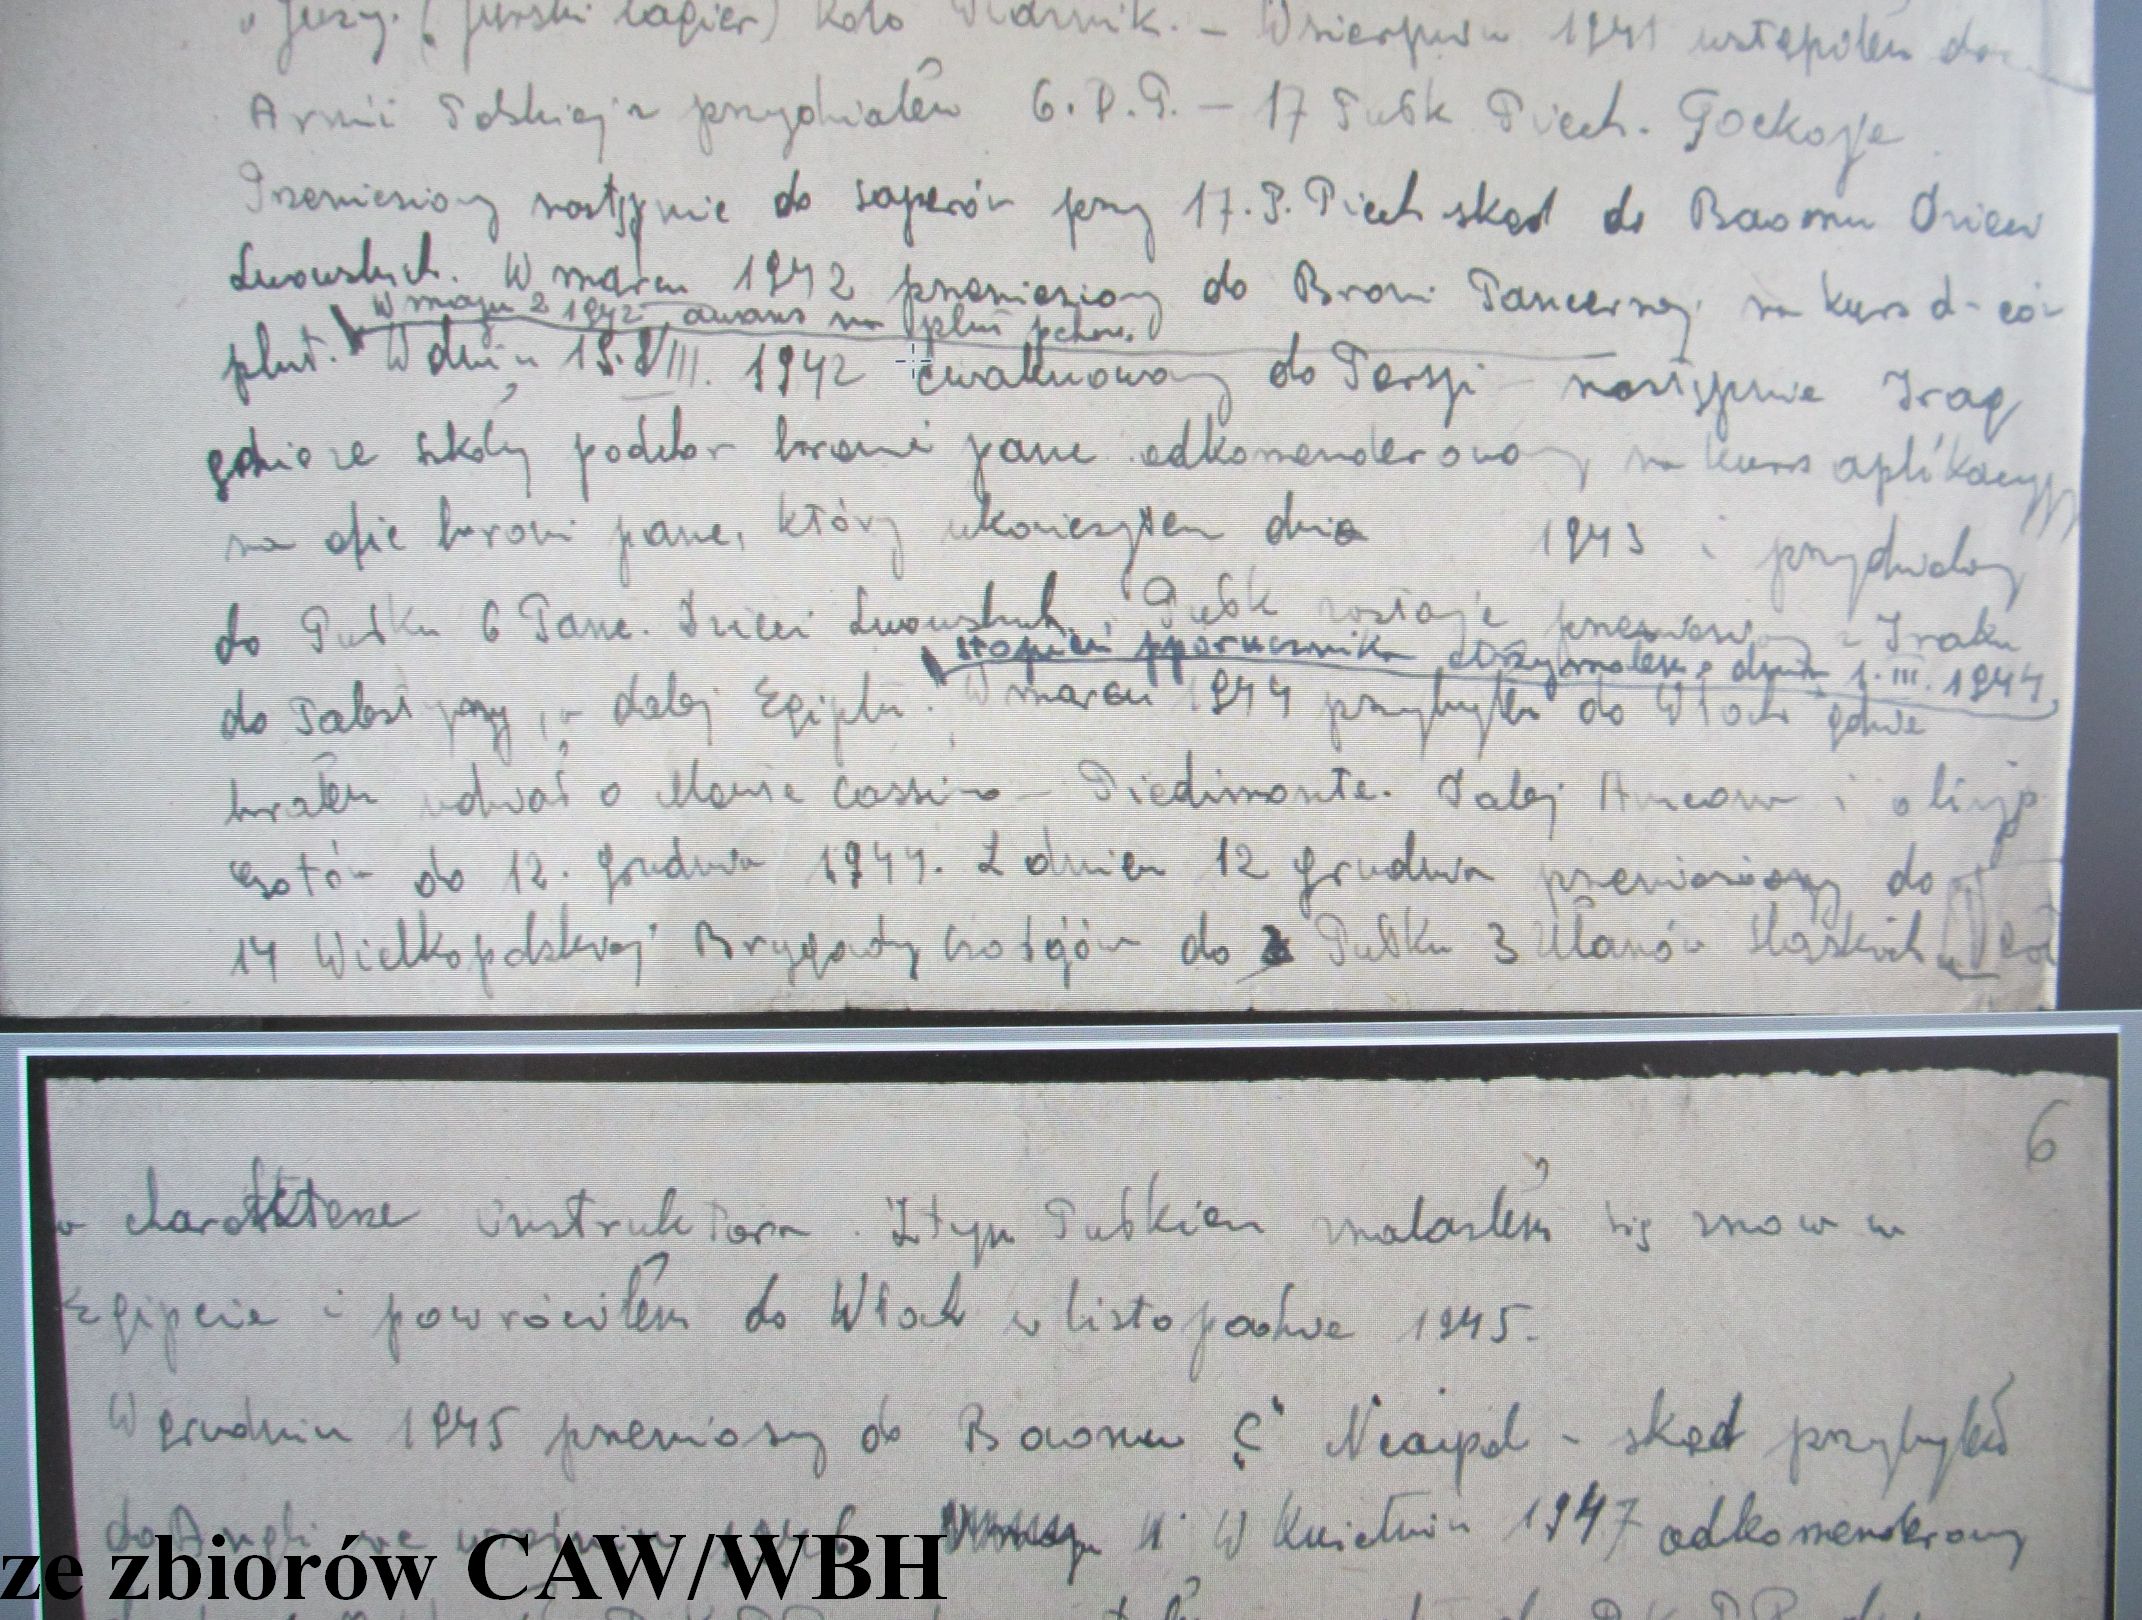 w Juży. (Jurski łagier) koło Wiaźnik. - W sierpniu 1941 wstąpiłem do
Armii Polskiej z przydziałem 6. D.P. - 17 Pułk Piech. Tockoje
Przeniesiony następnie do saperów przy 17. P. Piech skąd do Baonu Dzieci
Lwowskich. W marcu 1942 przeniesiony do Broni Pancernej na kurs d-ców
W maju 1942 awans na plut pchor.
plut. W dniu 15.VIII. 1942 ewakuowany do Persji następnie Iraq
gdzie ze szkoły podchor broni panc odkomenderowany na kurs aplikacyjny
na ofic broni panc, który ukończyłem dnia 1943 i przydzielony
do Pułku 6 Panc. Dzieci Lwowskich. Pułk zostaje przeniesiony z Iraku
stopień pporucznika otrzymałem z dniem 1.III.1944,
do Palestyny, dalej Egiptu. W marcu 1944 przybyłem do Włoch gdzie
brałem udział o Monte Cassino - Piedimonte. Dalej Ancona i
Gotów do 12. grudnia 1944. Z dniem 12 grudnia przeniesiony do
14 Wielkopolskiej Brygady do Pułku 3 Ułanów Śląskich
6
w charakterze instruktora. Z tym Pułkiem znalazłem się znow w
Egipcie i powróciłem do Włoch w listopadzie 1945.
W grudniu 1945 przeniosy do Baonu "S" Neapol - skąd przybyłem
do Anglii we wrześniu 1946 W Kwietniu 1947 odkomenderowany
ze zbiorów CAW/WBH